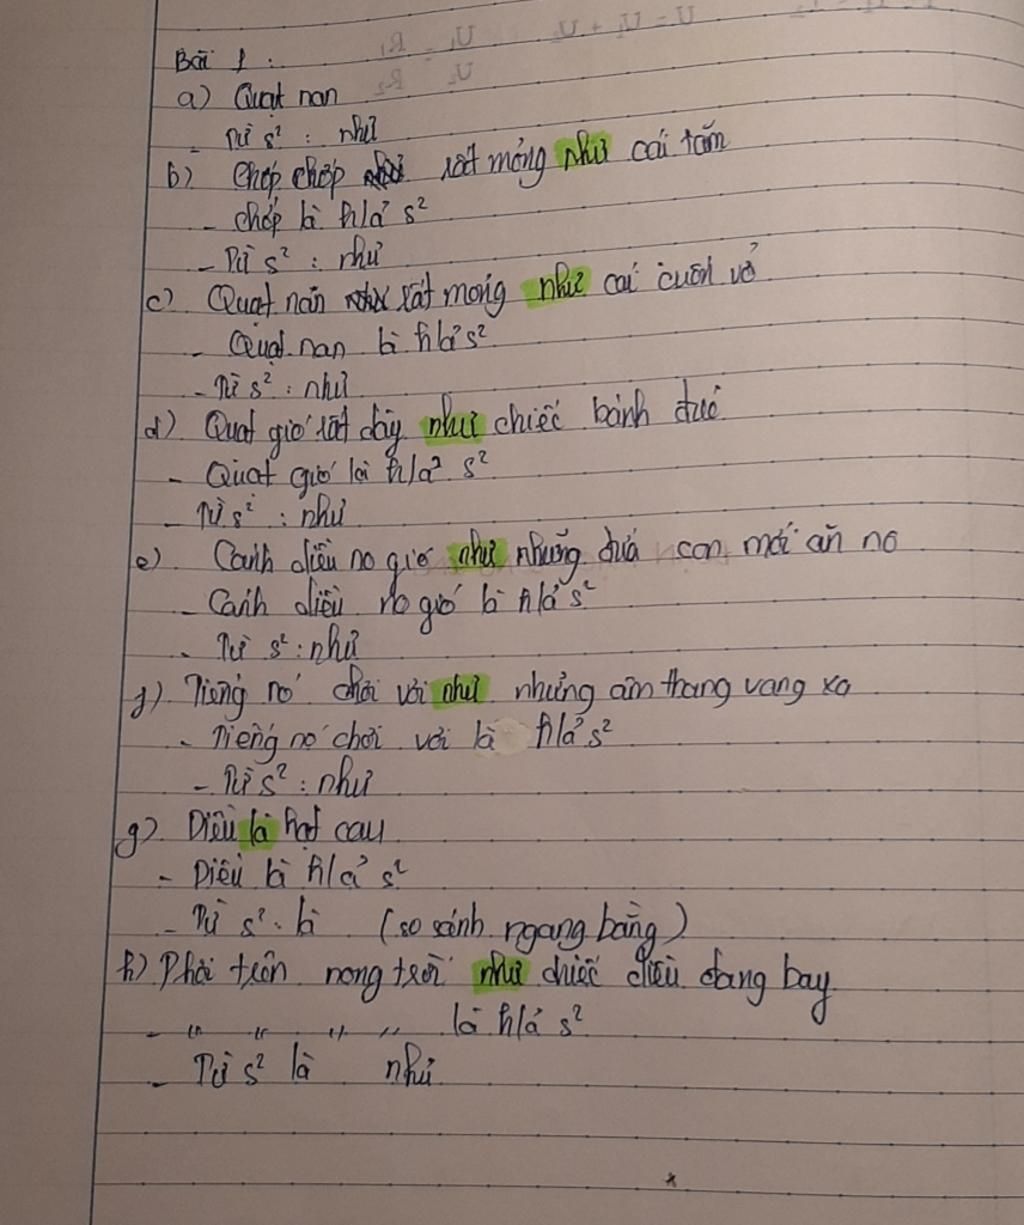 Bài 1 :
a) Quạt nan
- Từ s² : như
b) Chớp chớp rất mỏng như cái tăm
- chớp là h/ả s²
- Từ s² : như
c) Quạt nan rất mỏng như cái cuốn vở
- Quạt nan là h/ả s²
- Từ s² : như
d) Quạt gió rất dày như chiếc bánh đúc
- Quạt gió là h/ả s²
- Từ s² : như
e) Cánh diều no gió như những đứa con mới ăn no
- Cánh diều no gió là h/ả s²
- Từ s² : như
f) Tiếng nó chơi vơi như những âm thang vang xa
- Tiếng nó chơi vơi là h/ả s²
- Từ s² : như
g) Diều là hạt cau
- Diều là h/ả s²
- Từ s² : là (so sánh ngang bằng)
h) Phơi trên nong trời như chiếc diều đang bay
- " " " " là h/ả s²
- Từ s² là như